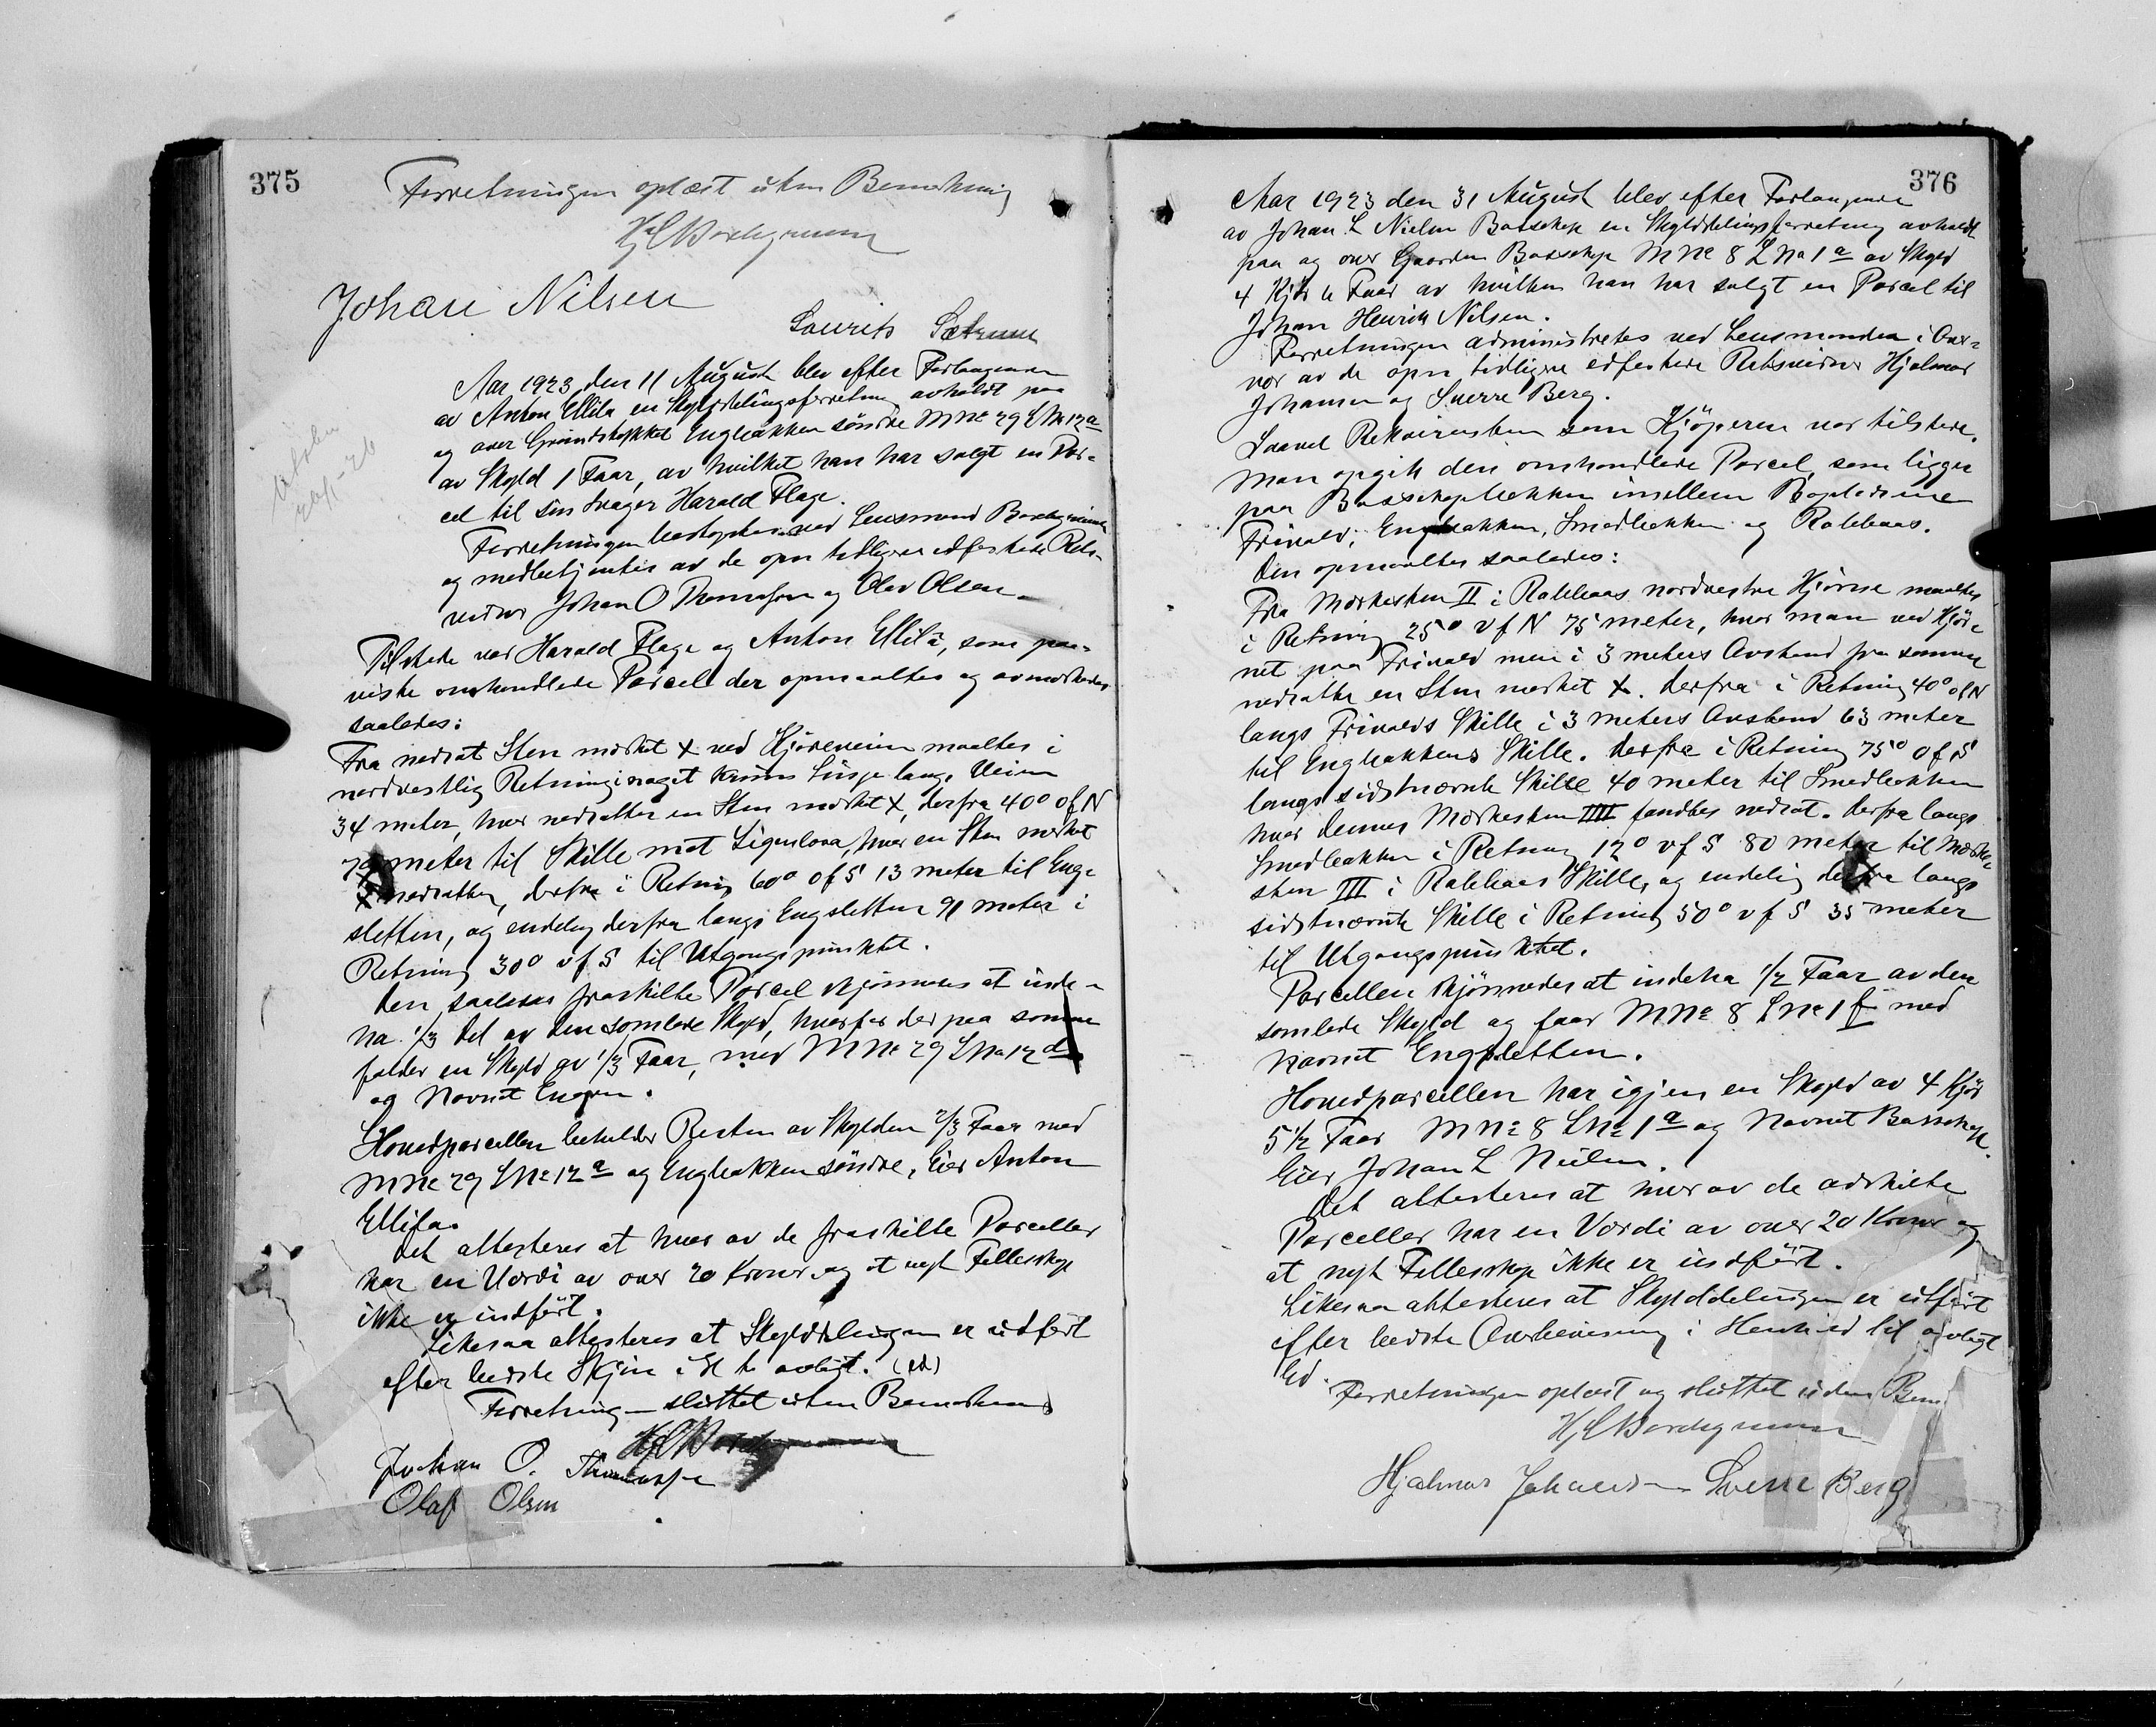 375
Forretningen oplæst uten Bemerkning
Johan Nilsen
Laurits
Aar 1923 den 11 August blev efter Forlangende
av Anton Ellila en Skylddelingsforretning avholdt paa
og over Grundstykket Engbakken söndre MNr 29 LNr 12a
av Skyld 1 Faar, av hvilket han har solgt en Par-
cel til sin Svager Harald Flage.
Forretningen ved Lensmand Borchgrevink
og medbetjentes av de opn tidligere edfestede Rets-
vidner Johan O Thomassen og Olav Olsen.
Tilstede var Harald Flage og Anton Ellila, som paa-
viste omhandlede Parcel der opmaaltes og avmerkedes
saaledes:
Fra nedsat Sten merket X ved Kjöreveien maaltes i
nordvestlig Retning i noget krum Linje langs Veien
34 meter, hvor nedsattes en Sten merket X, derfra 40° ofN
meter til Skille mot hvor en Sten merket
X nedsattes, derfra i Retning 60° of S 13 meter til Eng-
sletten, og endelig derfra langs Engsletten 91 meter i
Retning 30° vf S til Utgangspunktet.
Den saaledes fraskilte Parcel skjönnedes at inde-
ha 1/3 Del av den samlede Skyld, hvorfor der paa samme
falder en Skyld av 1/3 Faar, med MNr 29 LNr 12 d
og Navnet Engen.
Hovedparcellen beholder Resten av Skylden 2/3 Faar med
MNr 29 LNr 12 a og Engbakken söndre, Eier Anton
Ellila.
Det attesteres at hver av de fraskilte Parceller
har en Værdi av over 20 Kroner og at nyt Fellesskap
ikke er indfört.
Likesaa attesteres at Skylddelingen er utfört
efter bedste Skjön i H t avlagt. (Ed)
Forretning sluttet uten Bemerkning
Johan O. Thomassen
Olaf Olsen
376
Aar 1923 den 31 August blev efter Forlangende
av Johan L Nielsen Bossekop en Skylddelingsforretning avholdt
paa og over Gaarden Bossekop MNr 8 LNr 1 a av Skyld
4 Kjör 6 Faar av hvilken han har solgt en Parcel til
Johan Henrik Nilsen.
Forretningen administreres ved Lensmanden i Over-
vær av de opn tidligere edfestede Retsvidner Hjalmar
Johansen og Sverre Berg.
Saavel Rekvirenten som Kjöperen var tilstede.
Man opgik den omhandlede Parcel, som ligger
paa Bossekopbakken imellem Bopladsene
Frivold, Engbakken, Smedbakken og Rabbaas.
Den opmaaltes saaledes:
Fra Merkesten II i Rabbaas nordvestre Hjörne maaltes
i Retning 25° vf N 75 meter, hvor man ved Hjör-
net paa Frivold men i 3 meters Avstand fra samme
nedsatte en Sten merket X. Derfra i Retning 40° ofN
langs Frivolds Skille i 3 meters Avstand 63 meter
til Engbakkens Skille. Derfra i Retning 75° of S
langs sidstnævnte Skille 40 meter til Smedbakken
hvor dennes Merkesten IIII fandtes nedsat. Derfra langs
Smedbakken i Retning 12° vf S 80 meter til Merke-
sten III i Rabbaas Skille, og endelig derfra langs
sidstnævnte Skille i Retning 50° vf S 35 meter
til Utgangspunktet.
Parcellen skjönnedes at indeha 1/2 Faar av den
samlede Skyld og faar MNr 8 LNr 1 f med
Navnet Engsletten.
Hovedparcellen har igjen en Skyld av 4 Kjör
5 1/2 Faar MNr 8 LNr 1 a og Navnet Bossekop.
Eier Johan L Nielsen.
Det attesteres at hver av de adskilte
Parceller har en Værdi av over 20 Kroner og
at nyt Fellesskap ikke er indfört.
Likesaa attesteres at Skylddelingen er utfört
efter bedste Overbevisning i Henhold til avlagt
Ed.
Forretningen oplæst og sluttet uden Bem
Hjalmar Johansen Sverre Berg